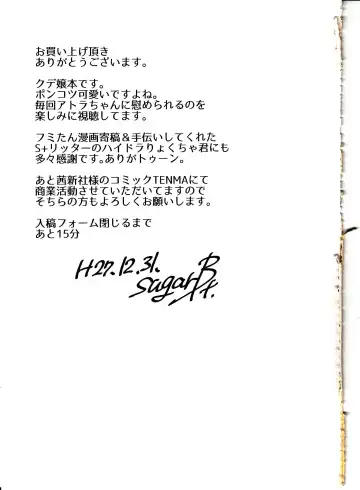 お買い上げ頂き
ありがとうございます。
クデ嬢本です。
ポンコツ可愛いですよね。
毎回アトラちゃんに慰められるのを
楽しみに視聴してます。
フミたん漫画寄稿&手伝いしてくれた
S+リッターのハイドラりょくちゃ君にも
多々感謝です。ありがトゥーン。
あと茜新社様のコミックTENMAにて
商業活動させていただいてますので
そちらの方もよろしくお願いします。
入稿フォーム閉じるまで
あと15分
H27.12.31.
sagar